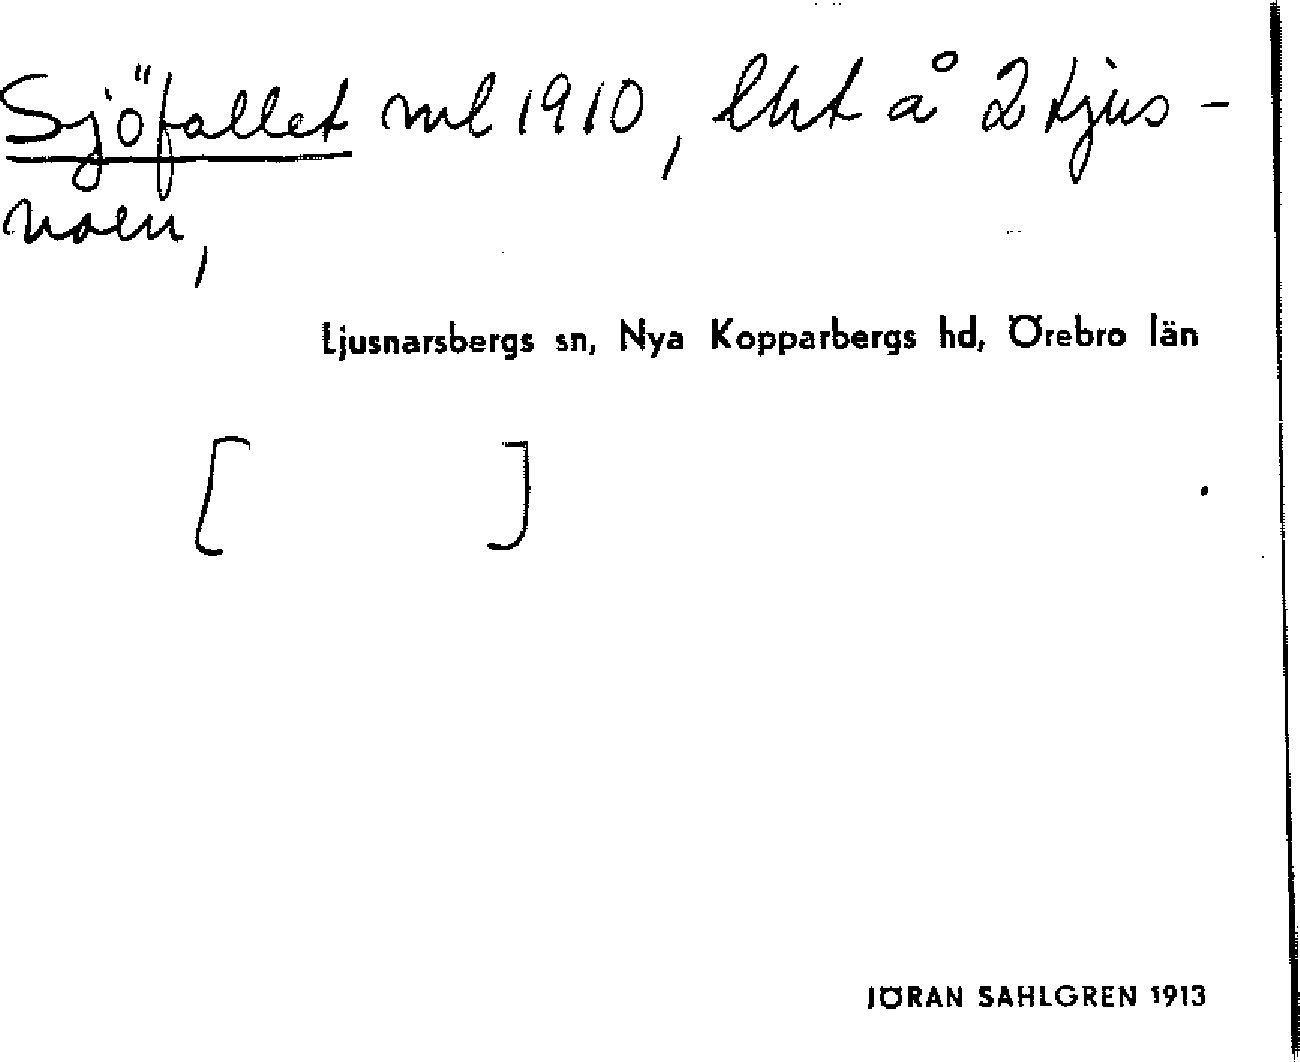 Sjöfallet ml 1910, lht å 2 Ljus-
noen,
Ljusnarsbergs sn, Nya Kopparbergs hd, Örebro län
[ ]
JÖRAN SAHLGREN 1913